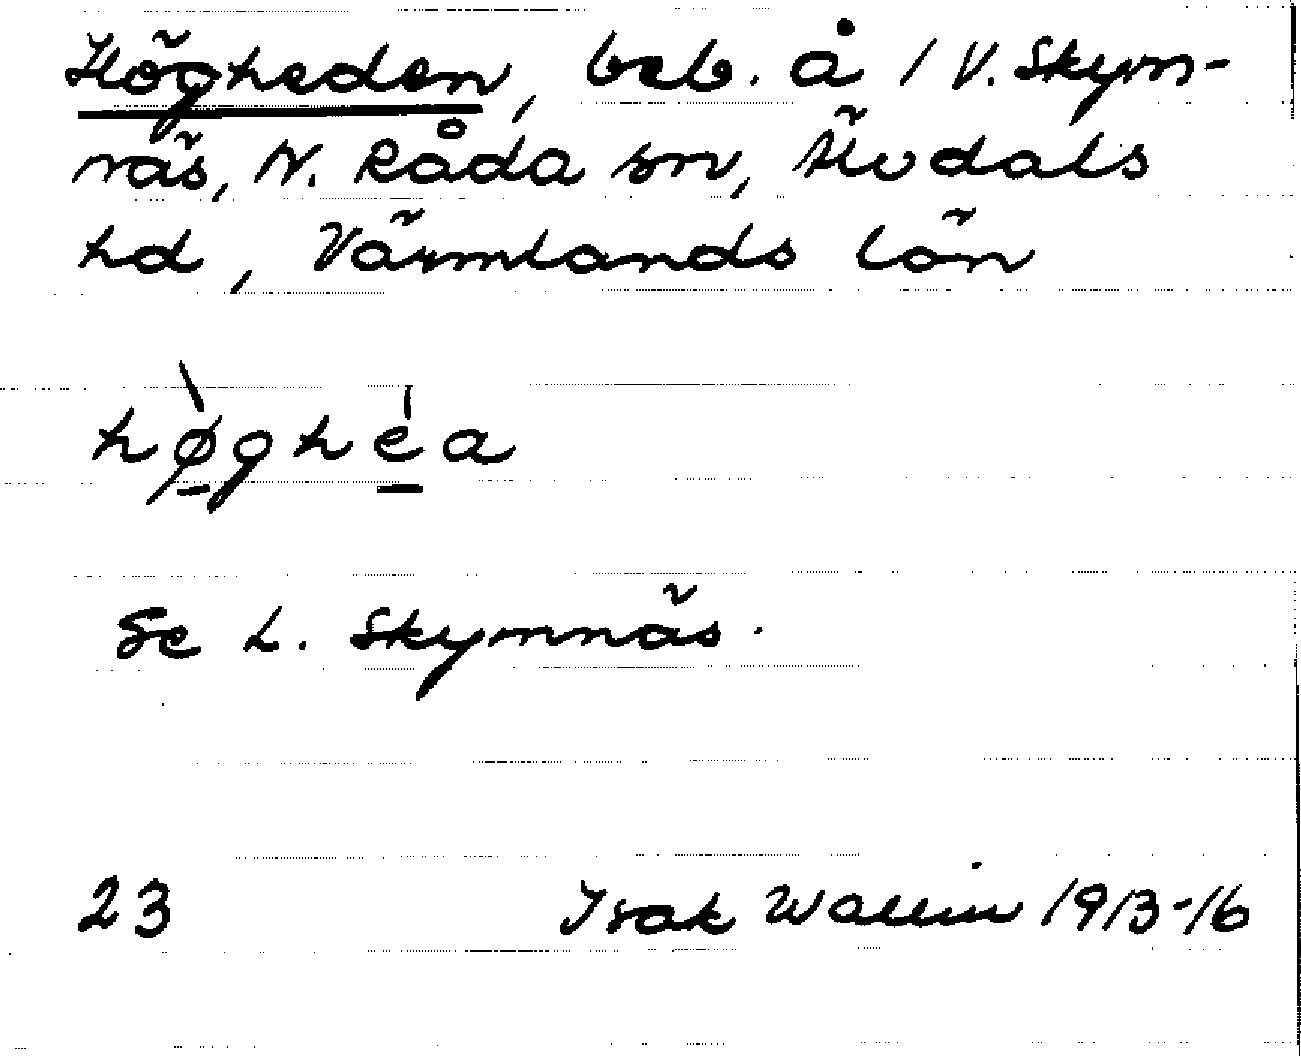 Högheden, beb. å 1 V. Skym-
näs, N. Råda sn, Älvdals
hd, Värmlands län
hø̀ghéa
Se L. Skymnäs.
23 Isak Wallin 1913-16